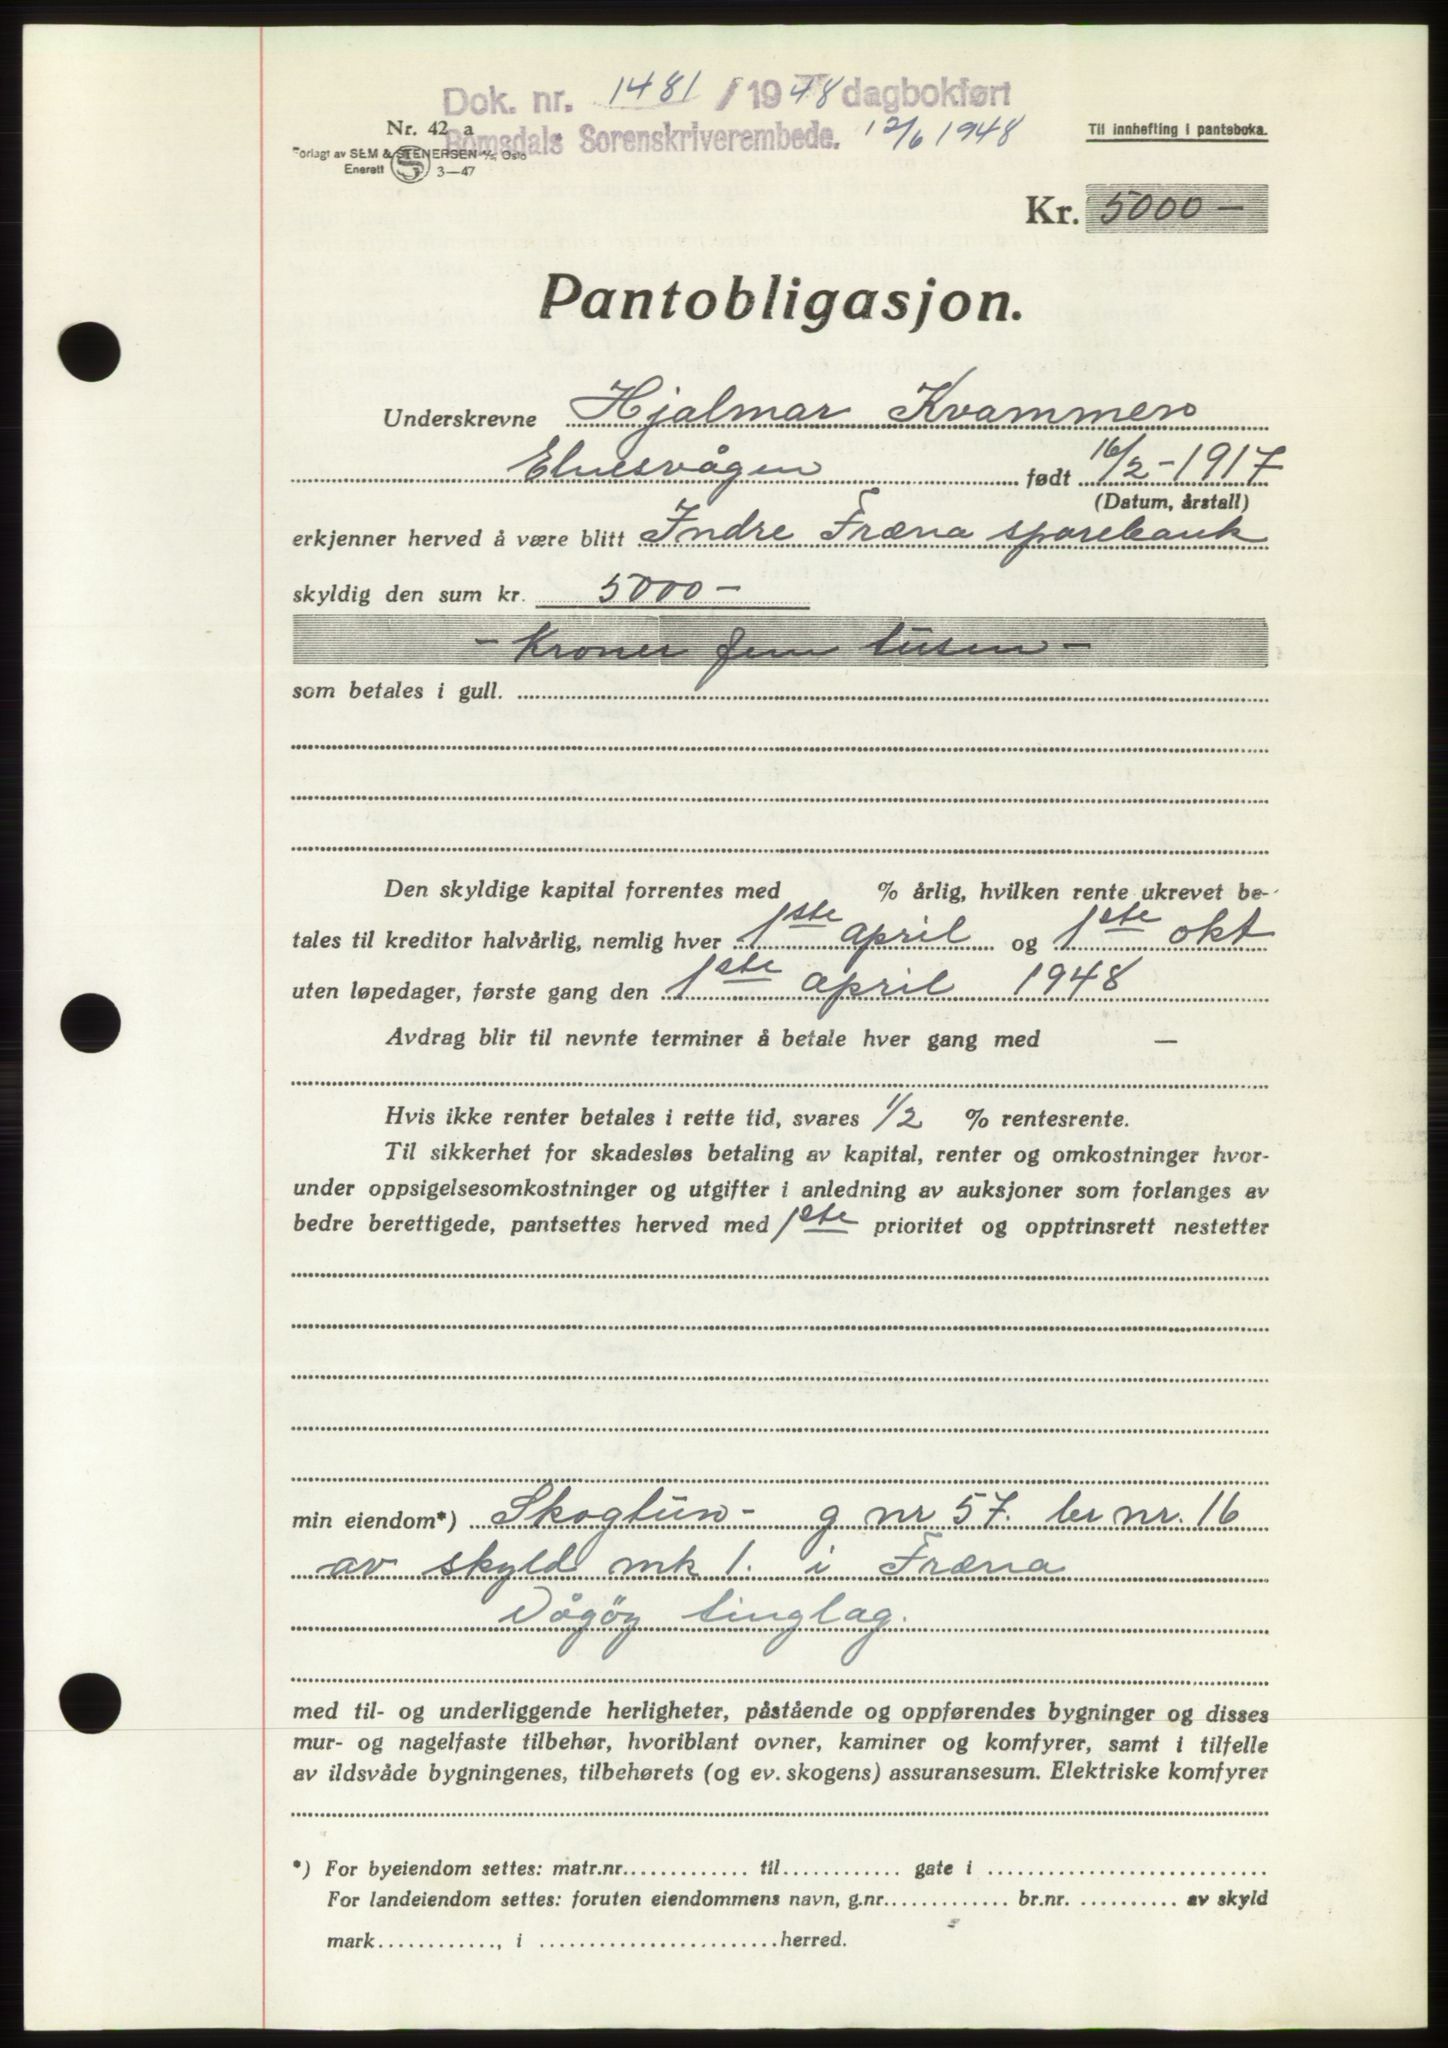 Dok. nr. 1481 / 1948 dagbokført
Nr. 42 a
Romsdals Sorenskriverembede. 12/6 1948
Til innhefting i panteboka.
Forlagt av SEM & STENERSEN A/S, Oslo
Enerett 3—47
Kr. 5000 —
Pantobligasjon.
Underskrevne Hjalmar Kvammen
Elnesvågen født 16/2 - 1917
(Datum, årstall)
erkjenner herved å være blitt Indre Fræna sparebank
skyldig den sum kr. 5000 —
— Kroner fem tusen —
som betales i gull.
Den skyldige kapital forrentes med % årlig, hvilken rente ukrevet be-
tales til kreditor halvårlig, nemlig hver 1ste april og 1ste okt
uten løpedager, første gang den 1ste april 1948
Avdrag blir til nevnte terminer å betale hver gang med —
Hvis ikke renter betales i rette tid, svares 1/2 % rentesrente.
Til sikkerhet for skadesløs betaling av kapital, renter og omkostninger hvor-
under oppsigelsesomkostninger og utgifter i anledning av auksjoner som forlanges av
bedre berettigede, pantsettes herved med 1ste prioritet og opptrinsrett nestetter
min eiendom*) Skogtun - g nr 57. br nr. 16
av skyld mk 1. i Fræna
Vågøy tinglag.
med til- og underliggende herligheter, påstående og oppførendes bygninger og disses
mur- og nagelfaste tilbehør, hvoriblant ovner, kaminer og komfyrer, samt i tilfelle
av ildsvåde bygningenes, tilbehørets (og ev. skogens) assuransesum. Elektriske komfyrer
*) For byeiendom settes: matr.nr. ............ til ............ gate i ............
For landeiendom settes: foruten eiendommens navn, g.nr. ............ br.nr. ............ av skyld
mark ............, i ............ herred.